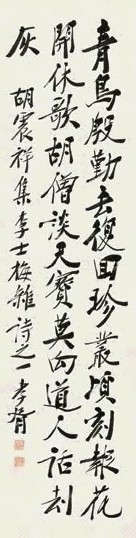 青鳥殷勤去復回珍叢頃刻報花
開休歌胡僧談天寶莫向道人話劫
灰 胡震祥集李士梅雜詩之一